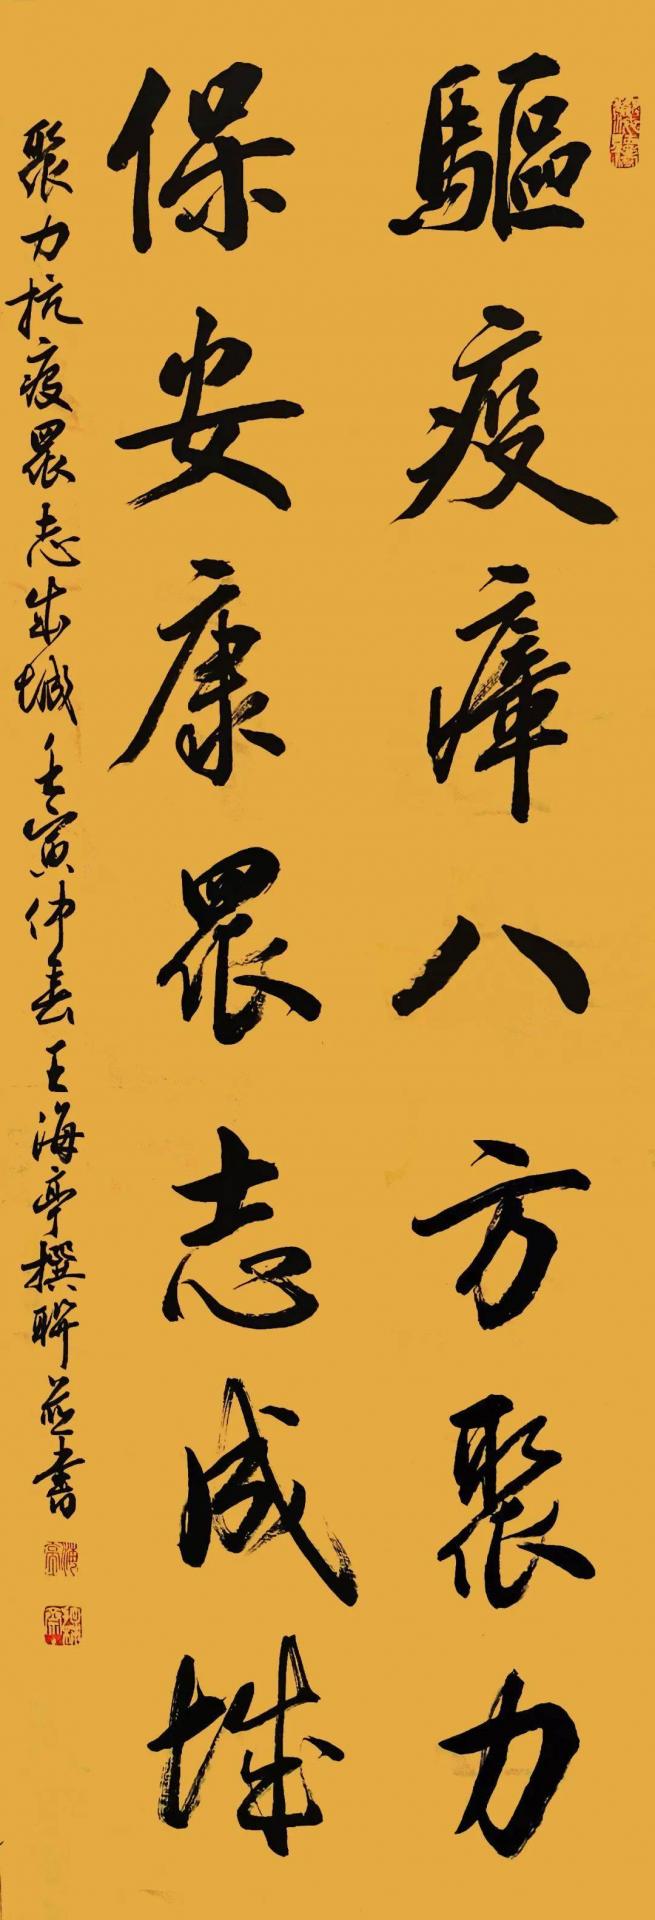 驅疫瘴八方聚力
保安康眾志成城
聚力抗疫眾志成城壬寅仲春王海亭撰聯並書
海亭